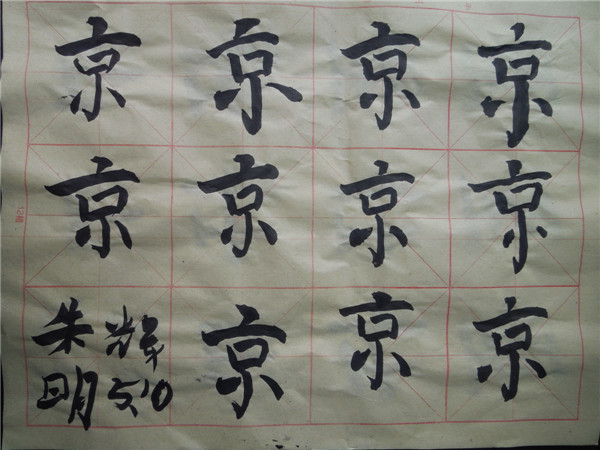 京 京 京 京
京 京 京 京
朱辉 京 京 京
明